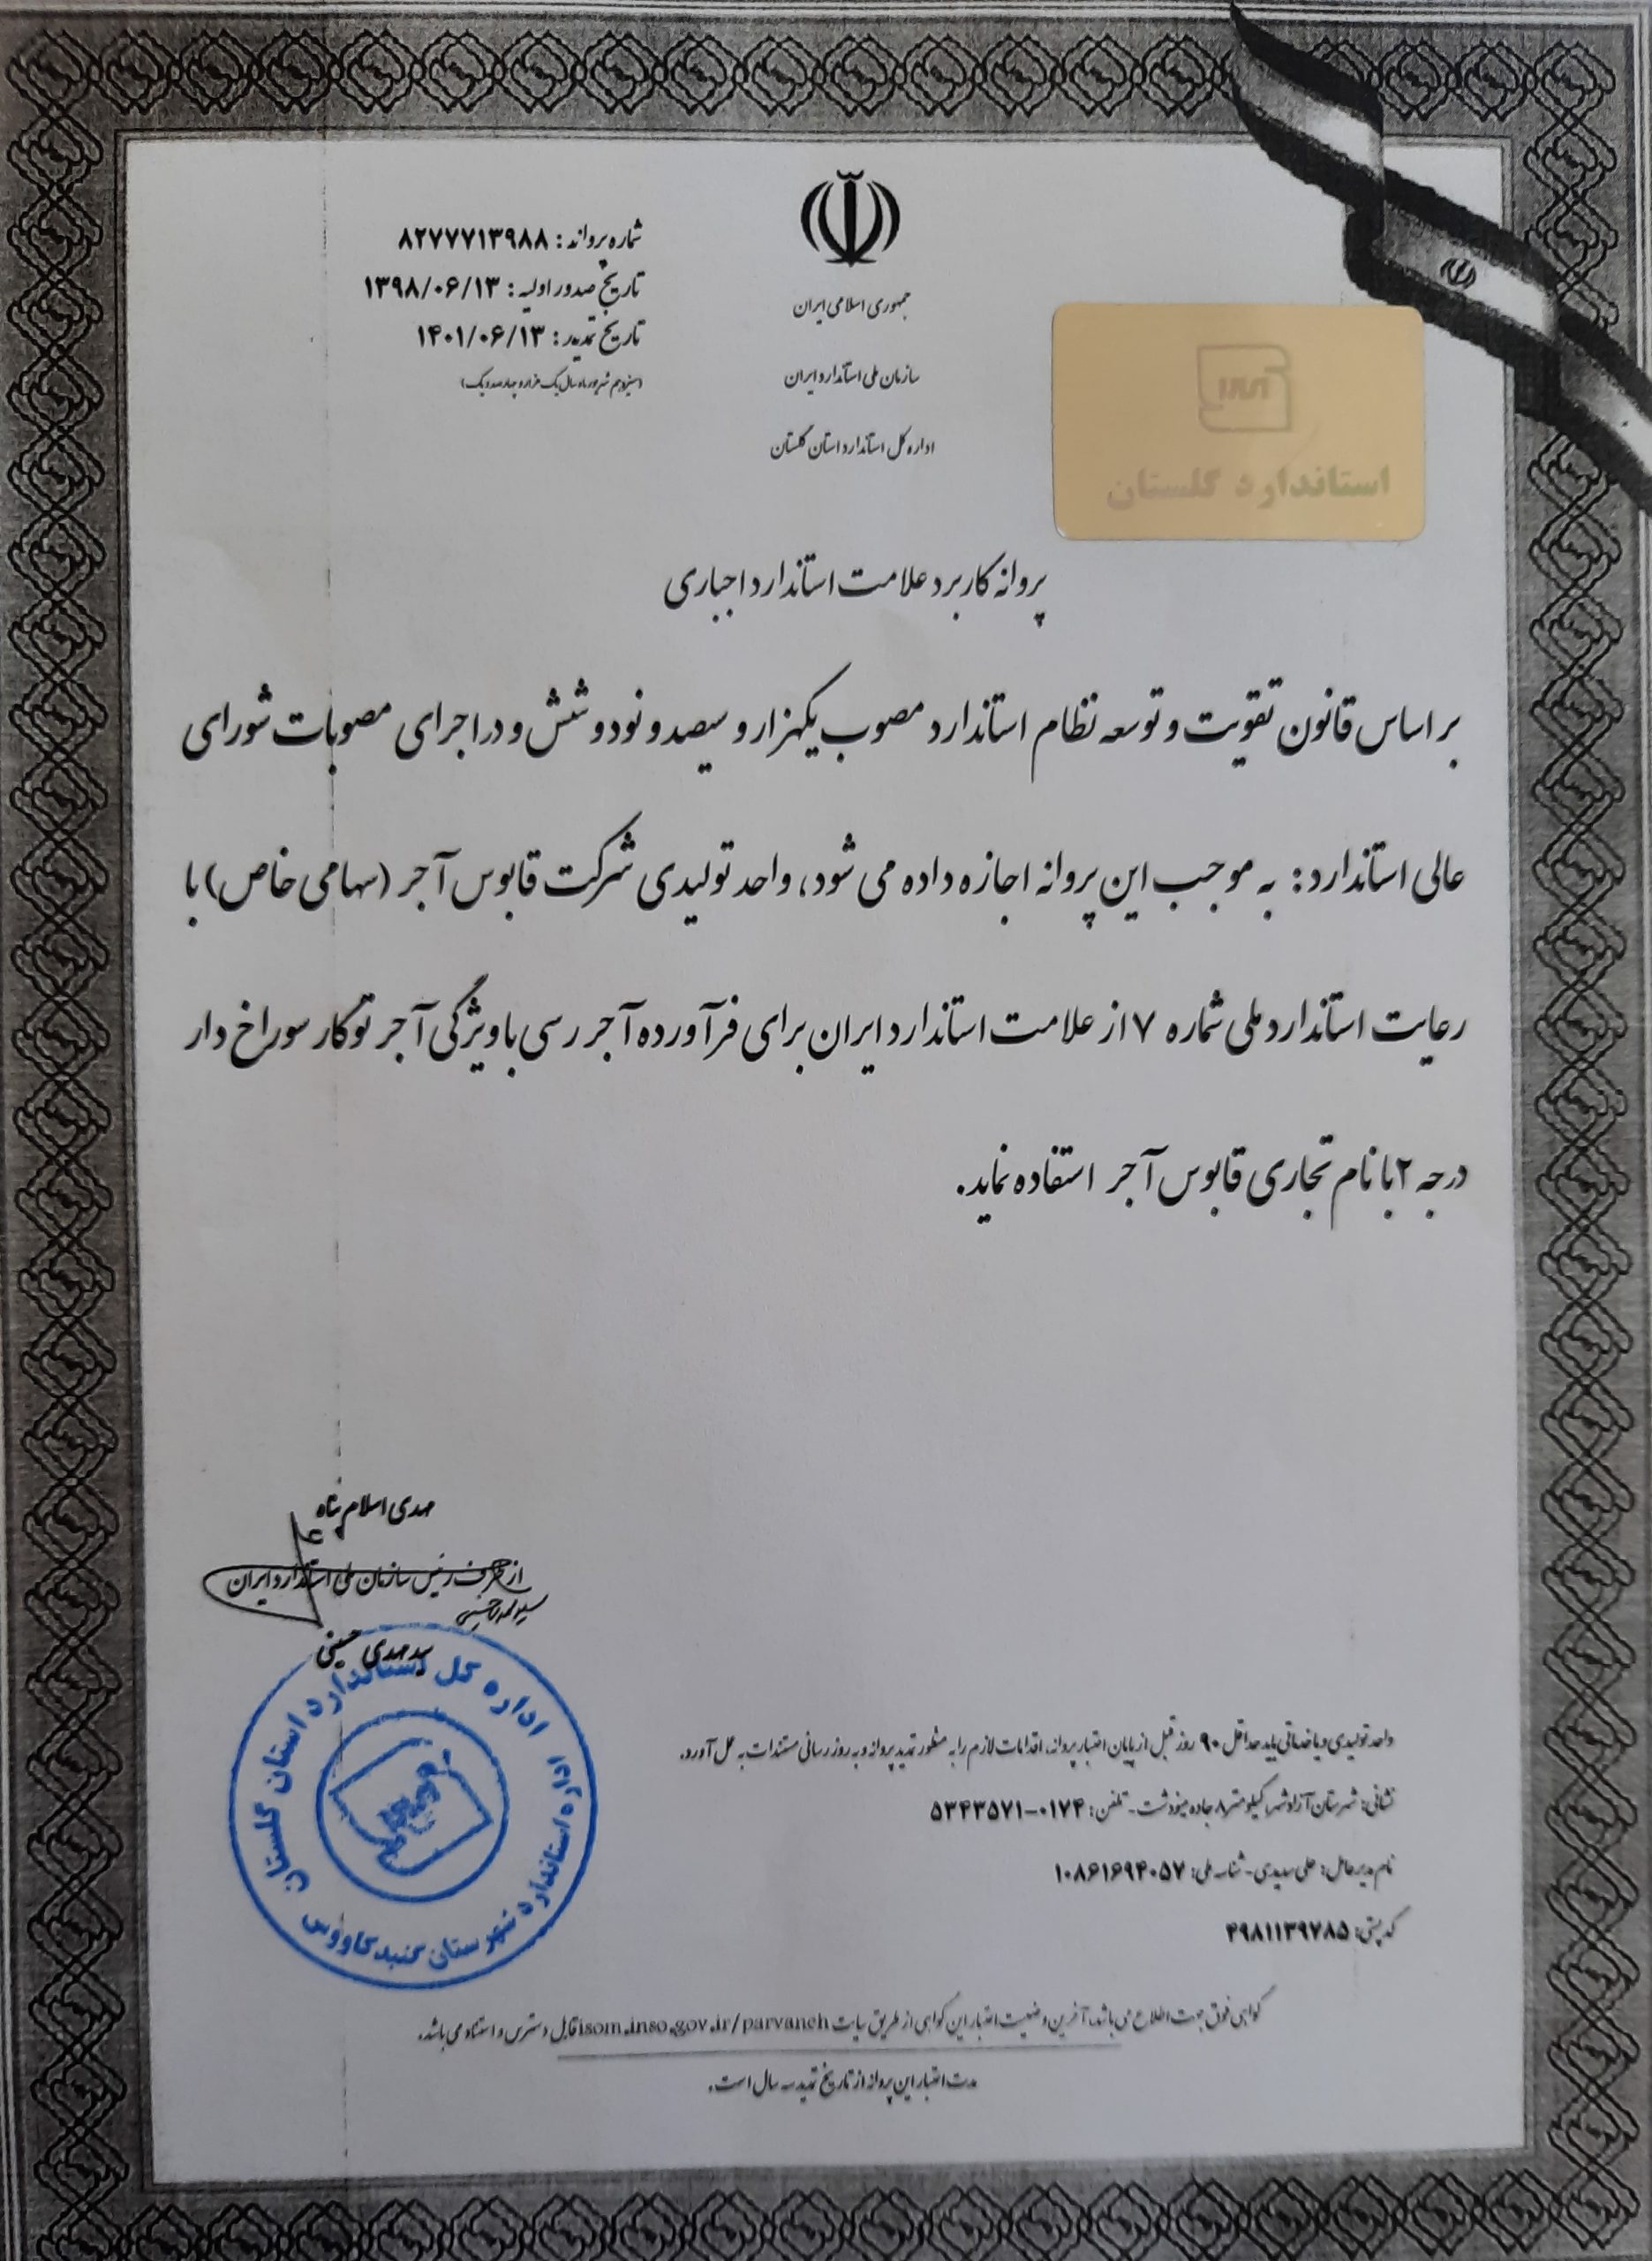 جمهوری اسلامی ایران
سازمان ملی استاندارد ایران
اداره کل استاندارد استان گلستان
شماره پروانه : ۸۲۷۷۷۱۳۹۸۸
تاریخ صدور اولیه : ۱۳۹۸/۰۶/۱۳
تاریخ تمدید : ۱۴۰۱/۰۶/۱۳
(سیزدهم شهریور ماه سال یک هزار و چهارصد و یک)
استاندارد گلستان
پروانه کاربرد علامت استاندارد اجباری
بر اساس قانون تقویت و توسعه نظام استاندارد مصوب یکهزار و سیصد و نود و شش و در اجرای مصوبات شورای
عالی استاندارد: به موجب این پروانه اجازه داده می شود، واحد تولیدی شرکت قابوس آجر (سهامی خاص) با
رعایت استاندارد ملی شماره ۷ از علامت استاندارد ایران برای فرآورده آجر رسی با ویژگی آجر توکار سوراخ دار
درجه ۲ با نام تجاری قابوس آجر استفاده نماید.
مهدی اسلام پناه
از طرف رئیس سازمان ملی استاندارد ایران
سید مهدی حسینی
اداره کل استاندارد استان گلستان
اداره استاندارد شهرستان گنبد کاووس
واحد تولیدی و یا خدماتی باید حداقل ۹۰ روز قبل از پایان اعتبار پروانه، اقدامات لازم را به منظور تمدید پروانه و به روز رسانی مستندات به عمل آورد.
نشانی: شهرستان آزادشهر، کیلومتر ۸ جاده مینودشت - تلفن: ۰۱۷۴-۵۳۴۳۵۷۱
نام مدیرعامل: علی سیدی - شناسه ملی: ۱۰۸۶۱۶۹۴۰۵۷
کد پستی: ۴۹۸۱۱۳۹۷۸۵
گواهی فوق جهت اطلاع می باشد، آخرین وضعیت اعتبار این گواهی از طریق سایت isom.inso.gov.ir/parvaneh قابل دسترس و استناد می باشد.
مدت اعتبار این پروانه از تاریخ تمدید سه سال است.